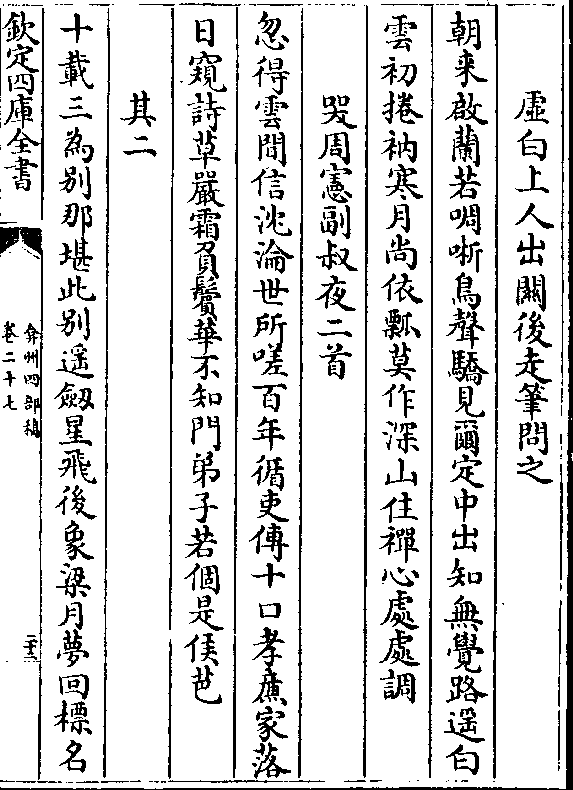 虛白上人出關後走筆問之
朝来啟蘭若啁哳鳥聲驕見爾定中出知無覺路遥白
雲初捲衲寒月尚依瓢莫作深山住禪心處處調
哭周憲副叔夜二首
忽得雲間信沈淪世所嗟百年循吏傳十口孝廉家落
日窺詩草嚴霜負鬢華不知門弟子若個是侯芭
其二
十載三為别那堪此别遥劔星飛後象梁月夢回標名
欽定四庫全書
弇州四部稿
卷二十七